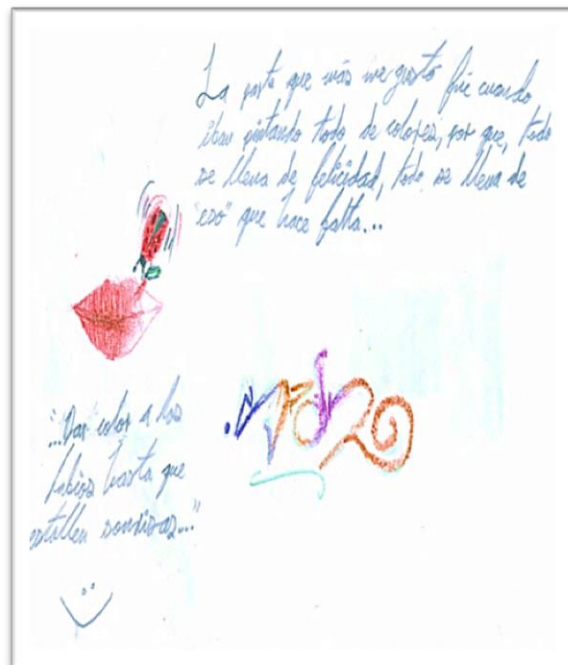 La parte que más me gustó fue cuando
iban pintando todo de colores, por que, todo
se llena de felicidad, todo se llena de
"eso" que hace falta...
"...Dar color a los
labios hasta que
estallen sonrisas..."